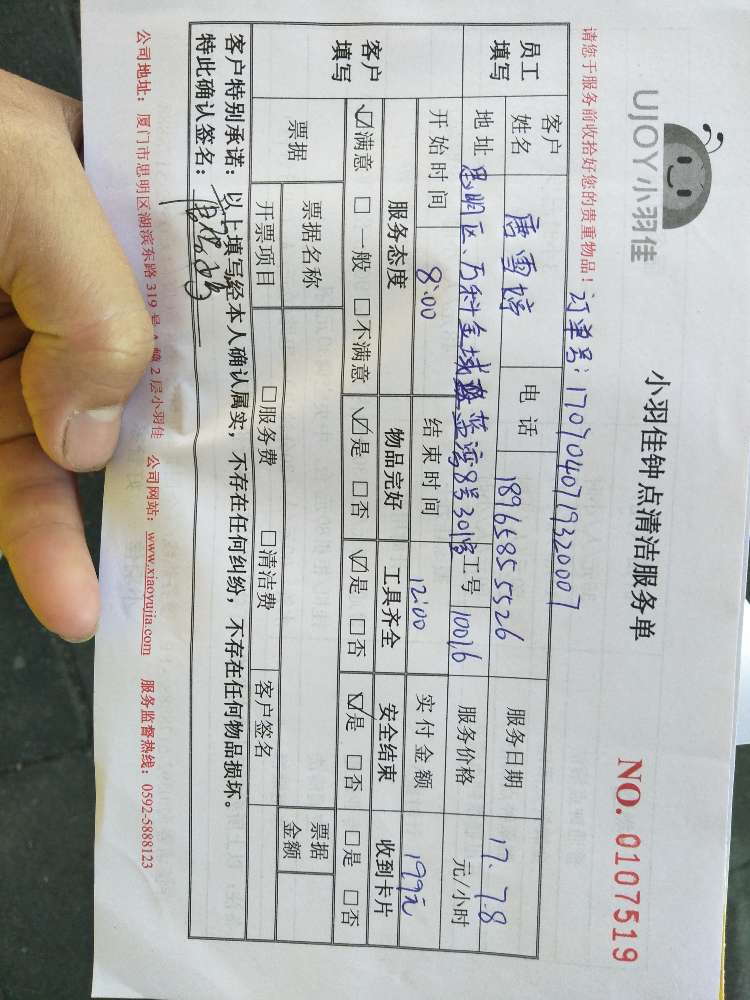 UJOY小羽佳
小羽佳钟点清洁服务单
NO. 0107519
请您于服务前收拾好您的贵重物品！ 订单号：1707040719320007
员工填写 客户姓名 唐雪婷 电话 18965855526 服务日期 17.7.8
地址 思明区、万科金域蓝湾8号301室 工号 10016 服务价格 元/小时
开始时间 8:00 结束时间 12:00 实付金额 199元
客户填写 服务态度 物品完好 工具齐全 安全结束 收到卡片
☑满意 □一般 □不满意 ☑是 □否 ☑是 □否 ☑是 □否 □是 □否
票据 票据名称 票据金额
开票项目 □服务费 □清洁费 客户签名
客户特别承诺：以上填写经本人确认属实，不存在任何纠纷，不存在任何物品损坏。
特此确认签名：
公司地址：厦门市思明区湖滨东路 319 号 A 幢 2 层小羽佳 公司网站：www.xiaoyujia.com 服务监督热线：0592-5888123